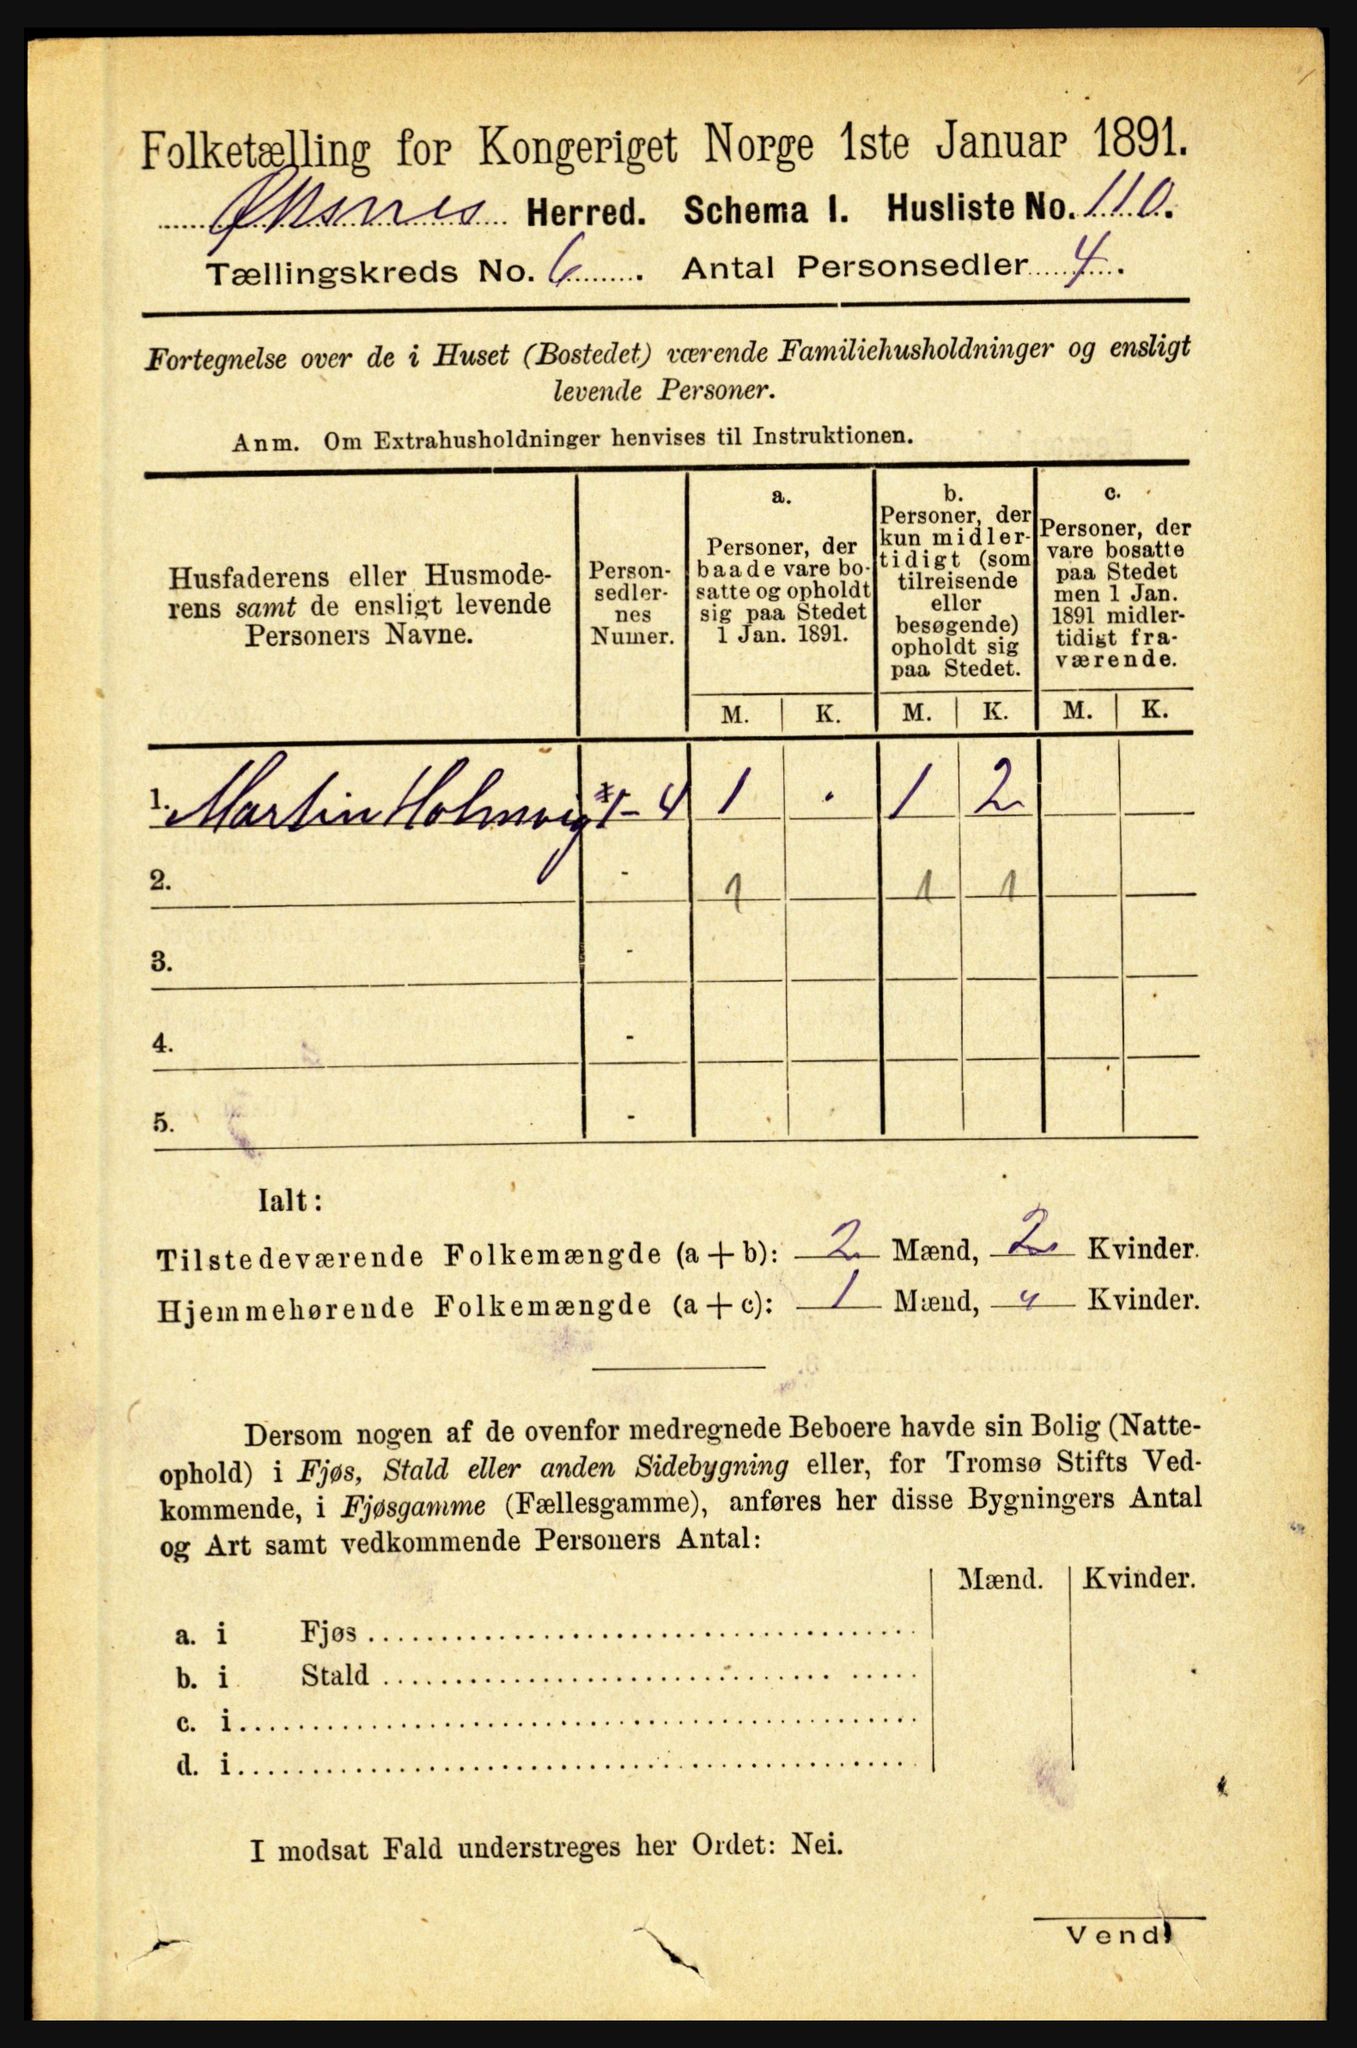 Folketælling for Kongeriget Norge 1ste Januar 1891.
Øksnes Herred. Schema I. Husliste No. 110.
Tællingskreds No. 6. Antal Personsedler 4.
Fortegnelse over de i Huset (Bostedet) værende Familiehusholdninger og ensligt
levende Personer.
Anm. Om Extrahusholdninger henvises til Instruktionen.
Husfaderens eller Husmode-
rens samt de ensligt levende
Personers Navne.
Person-
sedler-
nes
Numer.
a.
Personer, der
baade vare bo-
satte og opholdt
sig paa Stedet
1 Jan. 1891.
b.
Personer, der
kun midler-
tidigt (som
tilreisende
eller
besøgende)
opholdt sig
paa Stedet.
c.
Personer, der
vare bosatte
paa Stedet
men 1 Jan.
1891 midler-
tidigt fra-
værende.
M. K. M. K. M. K.
1. Martin Holmvig 1-4 1 . 1 2
2. - 1 1 1
3. -
4. -
5. -
Ialt:
Tilstedeværende Folkemængde (a + b): 2 Mænd, 2 Kvinder.
Hjemmehørende Folkemængde (a + c): 1 Mænd, Kvinder.
Dersom nogen af de ovenfor medregnede Beboere havde sin Bolig (Natte-
ophold) i Fjøs, Stald eller anden Sidebygning eller, for Tromsø Stifts Ved-
kommende, i Fjøsgamme (Fællesgamme), anføres her disse Bygningers Antal
og Art samt vedkommende Personers Antal:
Mænd. Kvinder.
a. i Fjøs
b. i Stald
c. i
d. i
I modsat Fald understreges her Ordet: Nei.
Vend!